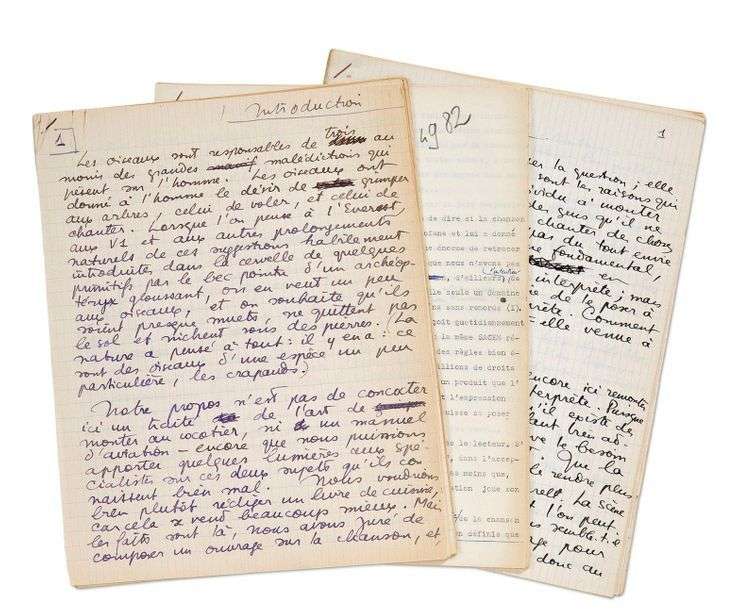 Introduction
1
Les oiseaux sont responsables de trois au
moins des grandes malédictions qui
pèsent sur l'homme. Les oiseaux ont
donné à l'homme le désir de grimper
aux arbres, celui de voler, et celui de
chanter. Lorsque l'on pense à l'Everest,
aux V1 et aux autres prolongements
naturels de ces suggestions habilement
introduites dans la cervelle de quelques
primitifs par le bec pointu d'un archéop-
téryx gloussant, on en veut un peu
aux oiseaux, et on souhaite qu'ils
soient presque muets, ne quittent pas
le sol et nichent sous des pierres. (La
nature a pensé à tout : il y en a : ce
sont des oiseaux d'une espèce un peu
particulière, les crapauds.)
Notre propos n'est pas de concocter
ici un traité de l'art de
monter au cocotier, ni un manuel
d'aviation - encore que nous puissions
apporter quelques lumières aux spé-
cialistes sur ces deux sujets qu'ils con
naissent bien mal. Nous voudrions
bien plutôt rédiger un livre de cuisine,
car cela se vend beaucoup mieux. Mais
les faits sont là, nous avons juré de
composer un ouvrage sur la chanson, et,
49 82
de dire si la chanson
ofane et lui a donné
encose de retrocer
que nous n'avons pas
, d'ailleurs, de
le seulo un domaine
ans sone remords (1).
goit quotidiennement
la même SACEM
des règles bien s-
illions de droits
un produit que l'
t l'expression
isse se poser
le lecteur. S'
t, dans l'accep-
as moins que,
ation joue son
la chanson
on définie que
1
er la question ; elle
sont les raisons qui
ividu à monter
des gens qu'il ne
chanter de choses
pas du tout envie
fondamental,
en
interprète ; mais
de la poser à
rète. Comment
elle venue à
encore ici remonter
terprète. Puisque
'il existe de
bien ad-
ve le besoin
Que la
le rendre plus
La scène
l'on peut
semble-t-il
age pour
donc au